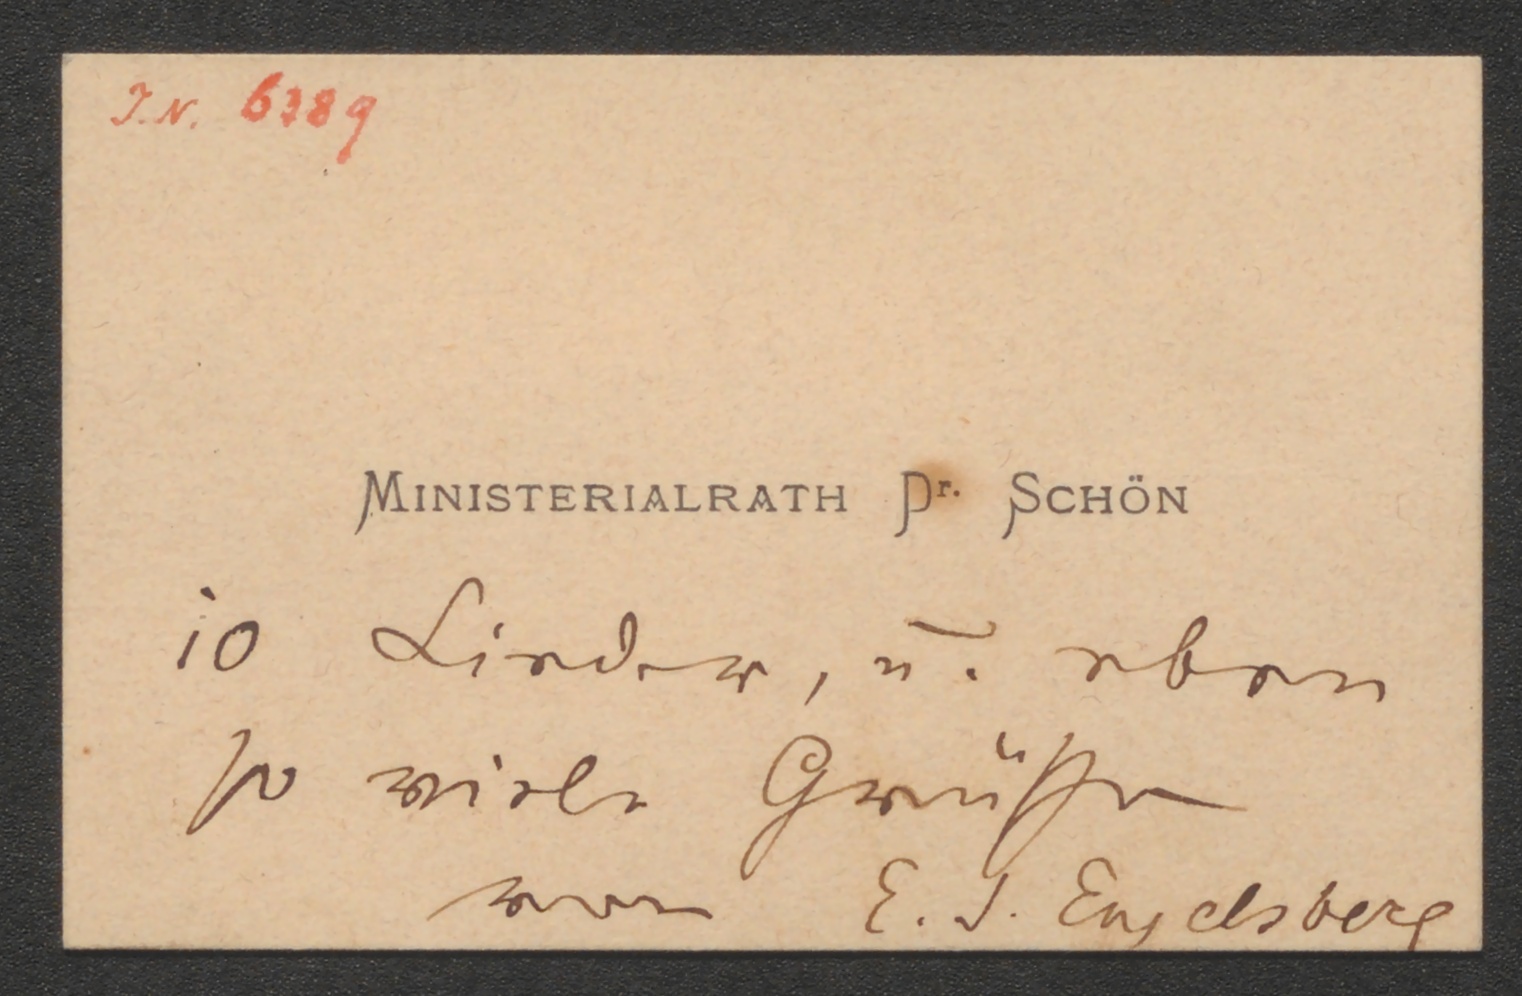 I.N. 6789
MINISTERIALRATH Dr. SCHÖN
10 Lieder, u. eben
so viele Grüße
von E. S. Engelsberg